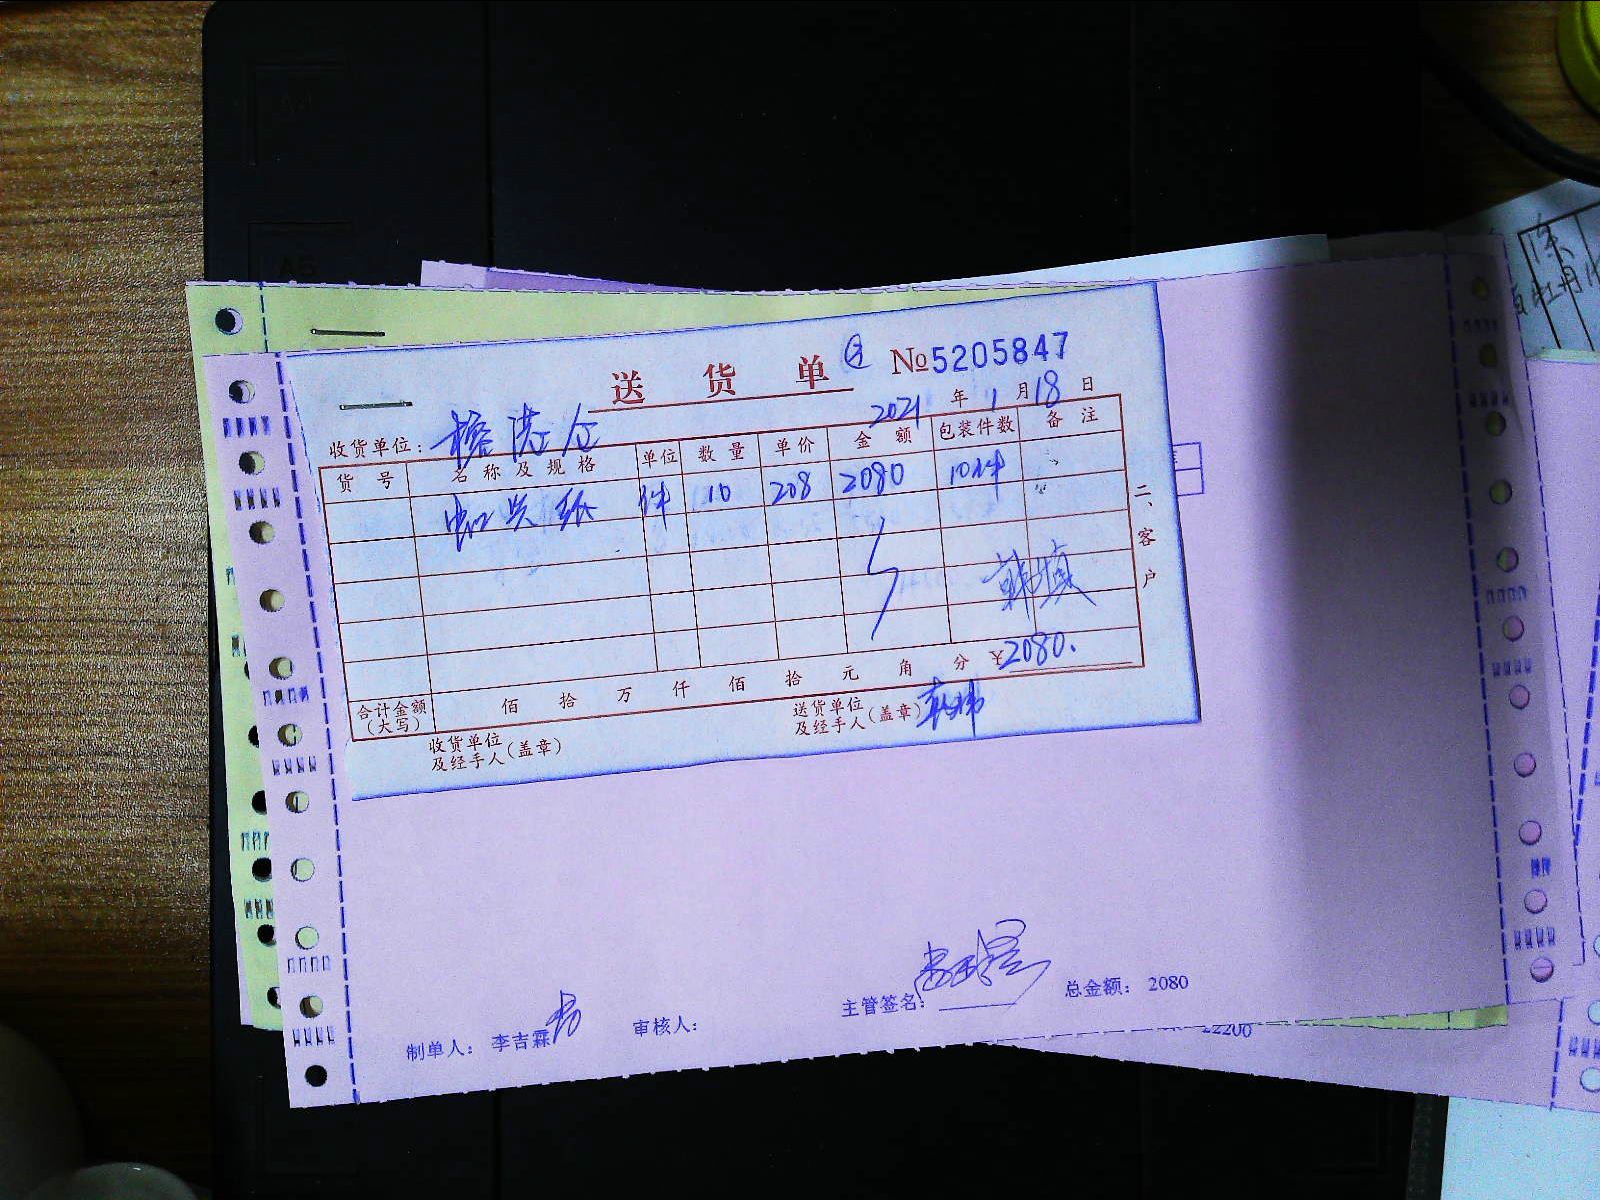 送货单 №5205847
2021年1月18日
收货单位：
货号 名称及规格 单位 数量 单价 金额 包装件数 备注
纸 件 10 208 2080 10件
二、客户
合计金额（大写） 佰 拾 万 仟 佰 拾 元 角 分 ¥2080.
收货单位及经手人（盖章）
送货单位及经手人（盖章）
制单人： 李吉霖 审核人： 主管签名： 总金额： 2080
22200
A5